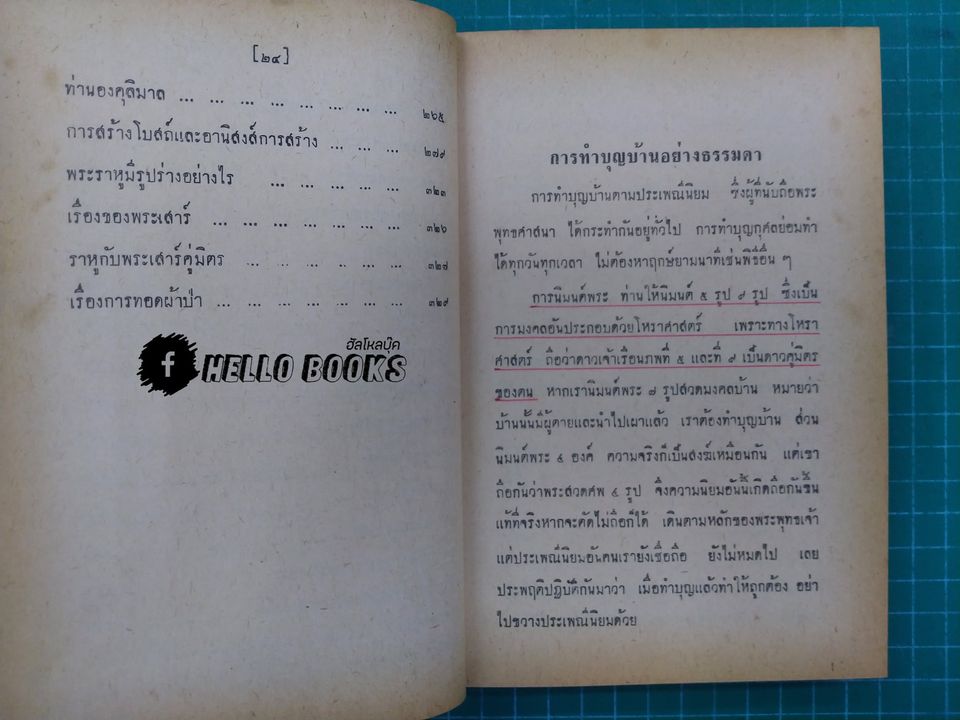 [๒๔]
ท่านองคุลิมาล ... ... ... ... ... ... ... ... ๒๖๕
การสร้างโบสถ์และอานิสงส์การสร้าง ... ... ... ๒๗๙
พระราหูมีรูปร่างอย่างไร ... ... ... ... ... ๓๒๓
เรื่องของพระเสาร์ ... ... ... ... ... ... ... ๓๒๖
ราหูกับพระเสาร์คู่มิตร ... ... ... ... ... ... ๓๒๘
เรื่องการทอดผ้าป่า ... ... ... ... ... ... ... ๓๒๙
ฮัลโหลบุ๊ค
f HELLO BOOKS
การทำบุญบ้านอย่างธรรมดา
การทำบุญบ้านตามประเพณีนิยม ซึ่งผู้ที่นับถือพระ
พุทธศาสนา ได้กระทำกันอยู่ทั่วไป การทำบุญกุศลย่อมทำ
ได้ทุกวันทุกเวลา ไม่ต้องหาฤกษ์ยามนาทีเช่นพิธีอื่น ๆ
การนิมนต์พระ ท่านให้นิมนต์ ๕ รูป ๙ รูป ซึ่งเป็น
การมงคลอันประกอบด้วยโหราศาสตร์ เพราะทางโหรา
ศาสตร์ ถือว่าดาวเจ้าเรือนภพที่ ๕ และที่ ๙ เป็นดาวคู่มิตร
ของตน หากเรานิมนต์พระ ๘ รูปสวดมงคลบ้าน หมายว่า
บ้านนั้นมีผู้ตายและนำไปเผาแล้ว เราต้องทำบุญบ้าน ส่วน
นิมนต์พระ ๔ องค์ ความจริงก็เป็นสงฆ์เหมือนกัน แต่เขา
ถือกันว่าพระสวดศพ ๔ รูป จึงความนิยมอันนี้เกิดถือกันขึ้น
แท้ที่จริงหากจะตัดไม่ถือก็ได้ เดินตามหลักของพระพุทธเจ้า
แต่ประเพณีนิยมอันคนเรายังเชื่อถือ ยังไม่หมดไป เลย
ประพฤติปฏิบัติกันมาว่า เมื่อทำบุญแล้วทำให้ถูกต้อง อย่า
ไปขวางประเพณีนิยมด้วย